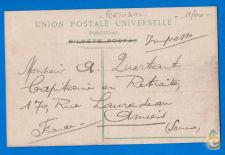 PORTUGAL
UNION POSTALE UNIVERSELLE
PORTUGAL
BILHETE POSTAL
Impresso
Monsieur A. Quertant
Capitaine en Retraite
179, Rue Laurendeau
Amiens
France (Somme)